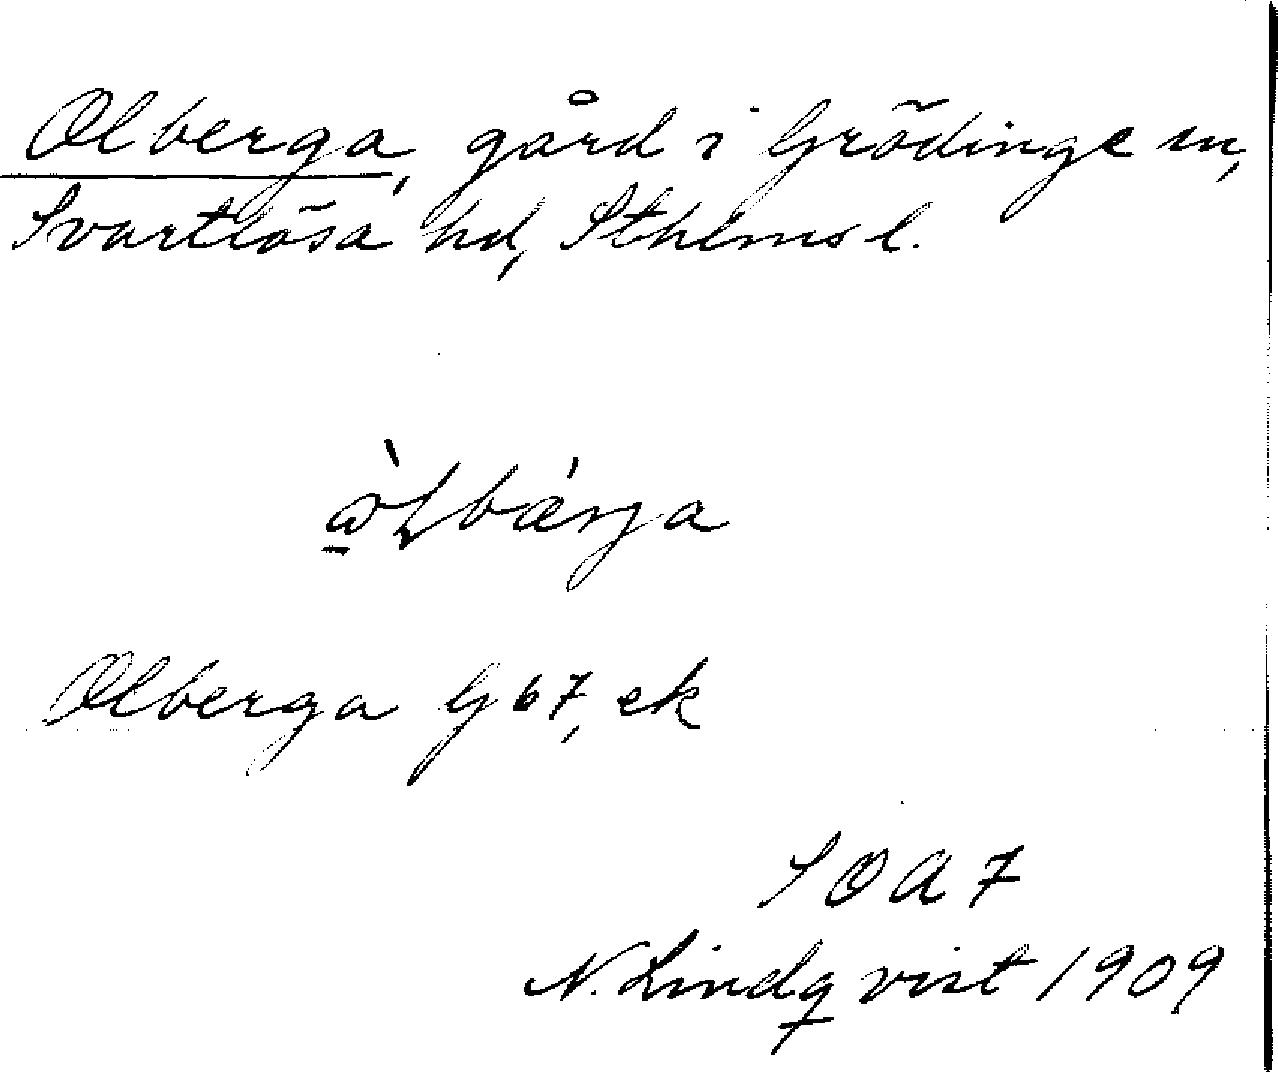 Olberga, gård i Grödinge sn,
Svartlösa hd, Sthlms l.
Olberga G 67, ek
SOA 7
N. Lindqvist 1909